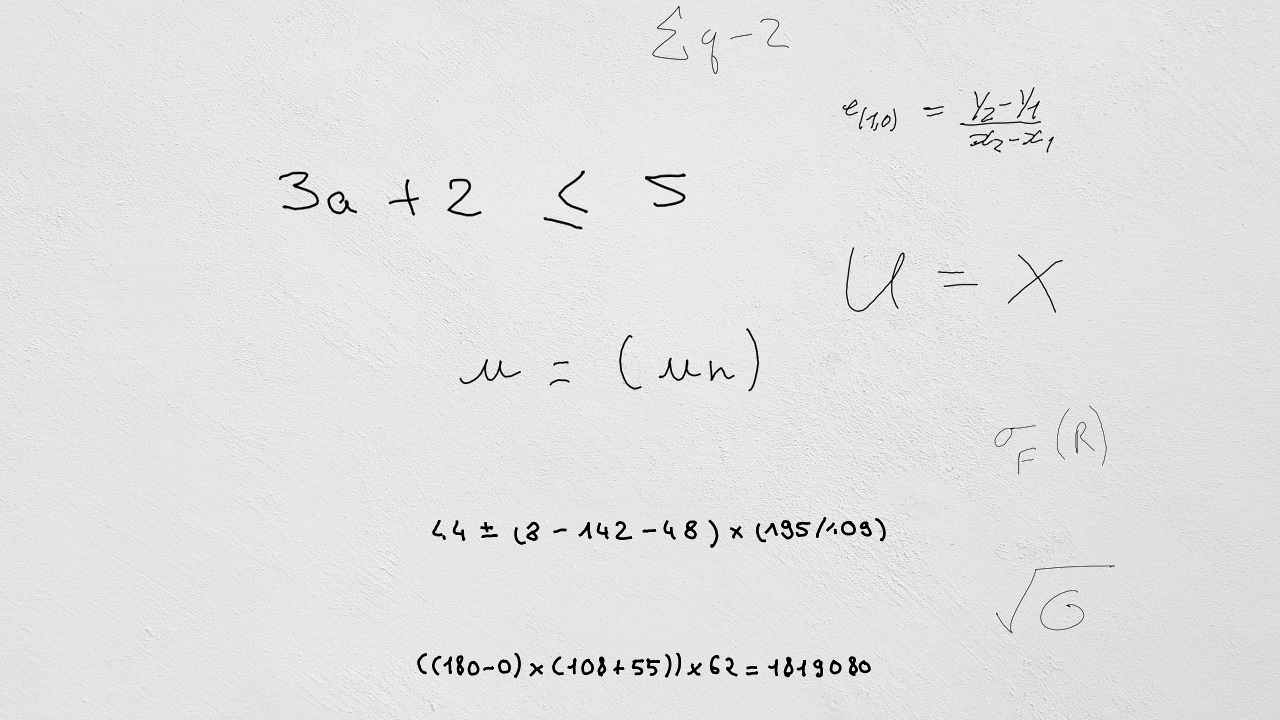 ∑q-2
e(1,0) = y2-y1/x2-x1
3a + 2 ≤ 5
U = X
u = (un)
44 ± (8-142-48) × (195/109)
σF(R)
√G
((180-0)×(108+55))×62=1819080